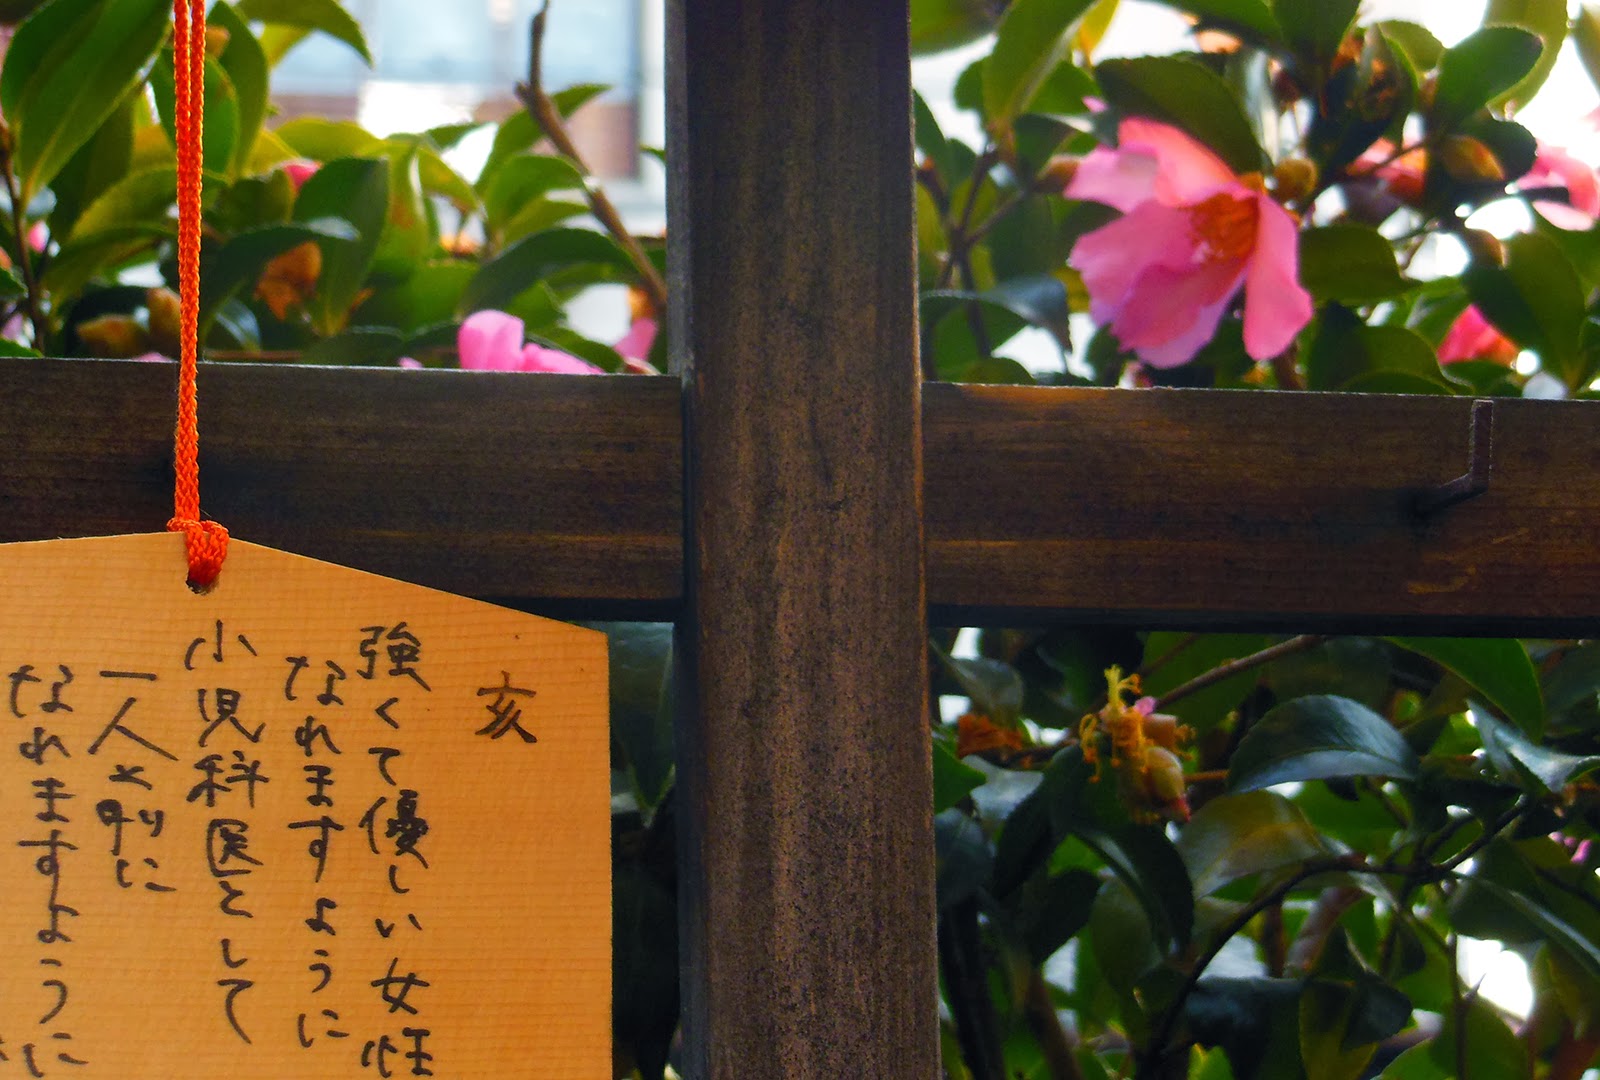 亥
強くて優しい女性
なれますように
小児科医として
一人と时りに
なれますように